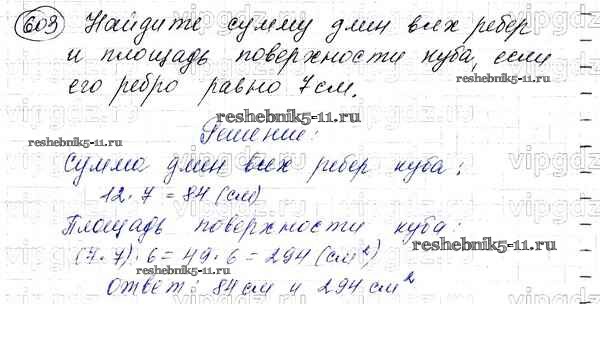 603 Найдите сумму длин всех ребер
и площадь поверхности куба, если
его ребро равно 7 см.
reshebnik5-11.ru
reshebnik5-11.ru
Решение:
reshebnik5-11.ru
Сумма длин всех ребер куба:
12 · 7 = 84 (см)
Площадь поверхности куба:
(7 · 7) · 6 = 49 · 6 = 294 (см²)
reshebnik5-11.ru
Ответ: 84 см и 294 см²
vipgdz.ru